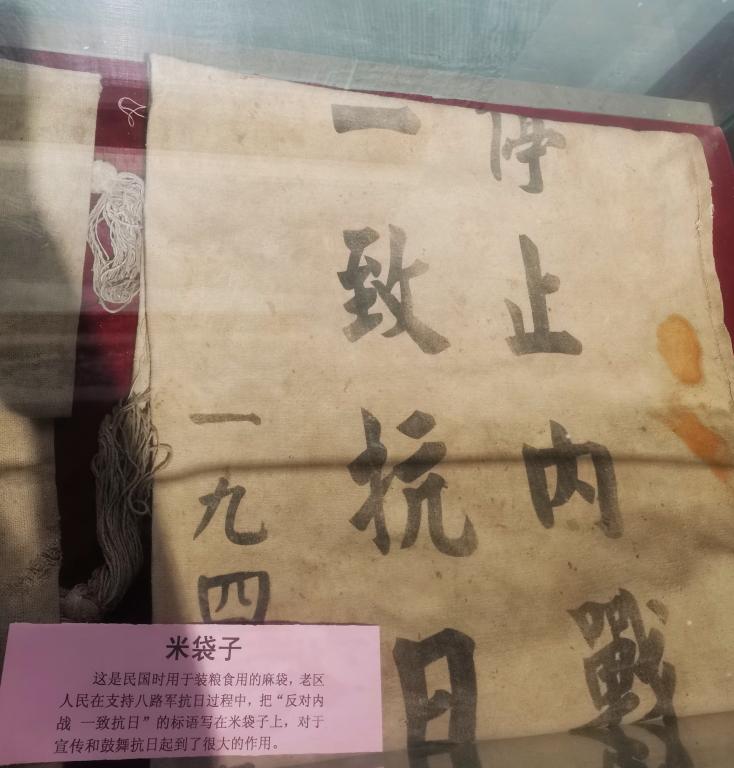 停止内戰
一致抗日
一九四
米袋子
这是民国时用于装粮食用的麻袋，老区
人民在支持八路军抗日过程中，把“反对内
战 一致抗日”的标语写在米袋子上，对于
宣传和鼓舞抗日起到了很大的作用。